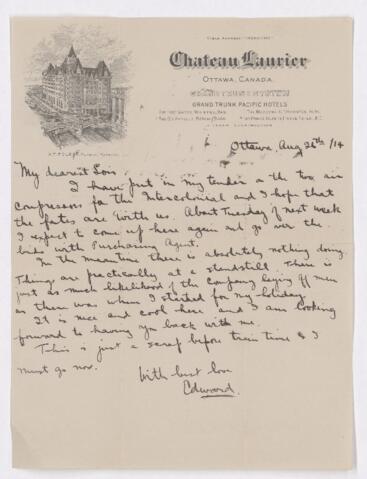 Chateau Laurier
OTTAWA, CANADA.
GRAND TRUNK SYSTEM
GRAND TRUNK PACIFIC HOTELS
Ottawa, Aug 26th /14
My dearest Lois,
I have put in my tender for the two air
compressors for the Intercolonial and I hope that
the fates are with us. About Tuesday of next week
I expect to come up here again and go over the
bids with Purchasing Agent.
In the meantime there is absolutely nothing doing.
Things are practically at a standstill. There is
just as much likelihood of the Company laying off men
as there was when I started for my holiday.
It is nice and cool here and I am looking
forward to having you back with me.
This is just a scrap before train time & I
must go now.
With best love
Edward.